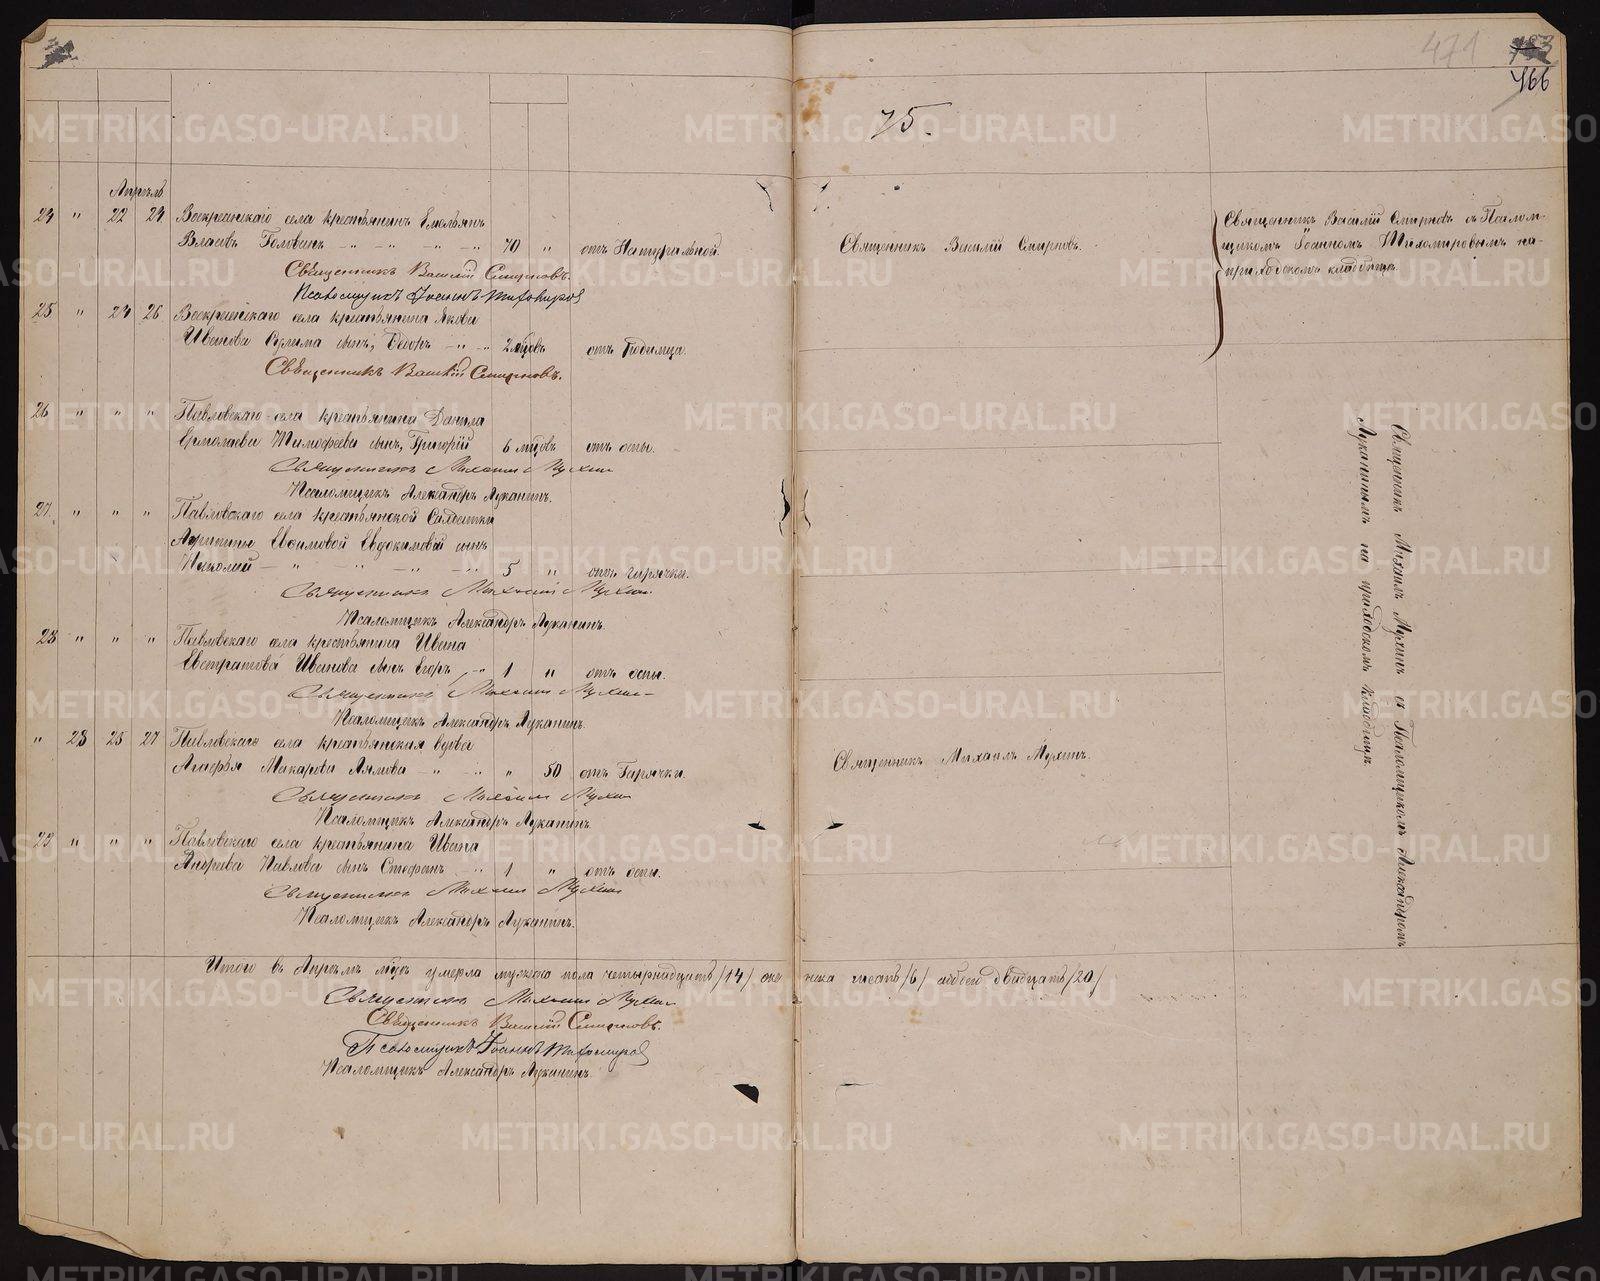 471
466
75.
Апрѣль
24 " 22 24 Воскресенскаго села крестьянинъ Емельянъ
Власовъ Голованъ - " - " - " - " 70 " отъ Натуральной.
Священникъ Василій Смирновъ.
Священникъ Василій Смирновъ съ Псалом-
щикомъ Іоанномъ Тихомировымъ на
приходскомъ кладбищѣ.
Священникъ Василій Смирновъ.
Псаломщикъ Іоаннъ Тихомировъ
25 " 24 26 Воскресенскаго села крестьянина Якова
Иванова сынъ, - " - " 2 мѣцовъ отъ Родимца.
Священникъ Василій Смирновъ.
26 " " " Павловскаго села крестьянина Данила
Ермолаева Тимофеева сынъ, Григорій 6 мѣцовъ отъ оспы.
Священникъ Михаилъ Мухинъ
Псаломщикъ Александръ Луканинъ.
27 " " " Павловскаго села крестьянской
Евдокимовой сынъ
Николай - " - " - " - " 5 " отъ горячки.
Священникъ Михаилъ Мухинъ.
Псаломщикъ Александръ Луканинъ.
28 " " " Павловскаго села крестьянина Ивана
Евстратова Иванова сынъ Егоръ - " 1 " отъ оспы.
Священникъ Михаилъ Мухинъ
Псаломщикъ Александръ Луканинъ.
" 28 25 27 Павловскаго села крестьянская вдова
Агафья Макарова - " - " " 50 отъ Горячки.
Священникъ Михаилъ Мухинъ.
Священникъ Михаилъ Мухинъ
Псаломщикъ Александръ Луканинъ.
29 " " " Павловскаго села крестьянина Ивана
Андреева Павлова сынъ Стефанъ - " 1 " отъ оспы.
Священникъ Михаилъ Мухинъ
Псаломщикъ Александръ Луканинъ.
Священникъ Михаилъ Мухинъ съ Псаломщикомъ Александромъ
Луканинымъ на приходскомъ кладбищѣ.
Итого въ Апрѣлѣ мѣцѣ умерло мужска пола четырнадцать /14/ женска шесть /6/ обоего двадцать /20/
Священникъ Михаилъ Мухинъ
Священникъ Василій Смирновъ.
Псаломщикъ Іоаннъ Тихомировъ
Псаломщикъ Александръ Луканинъ.
METRIKI.GASO-URAL.RU